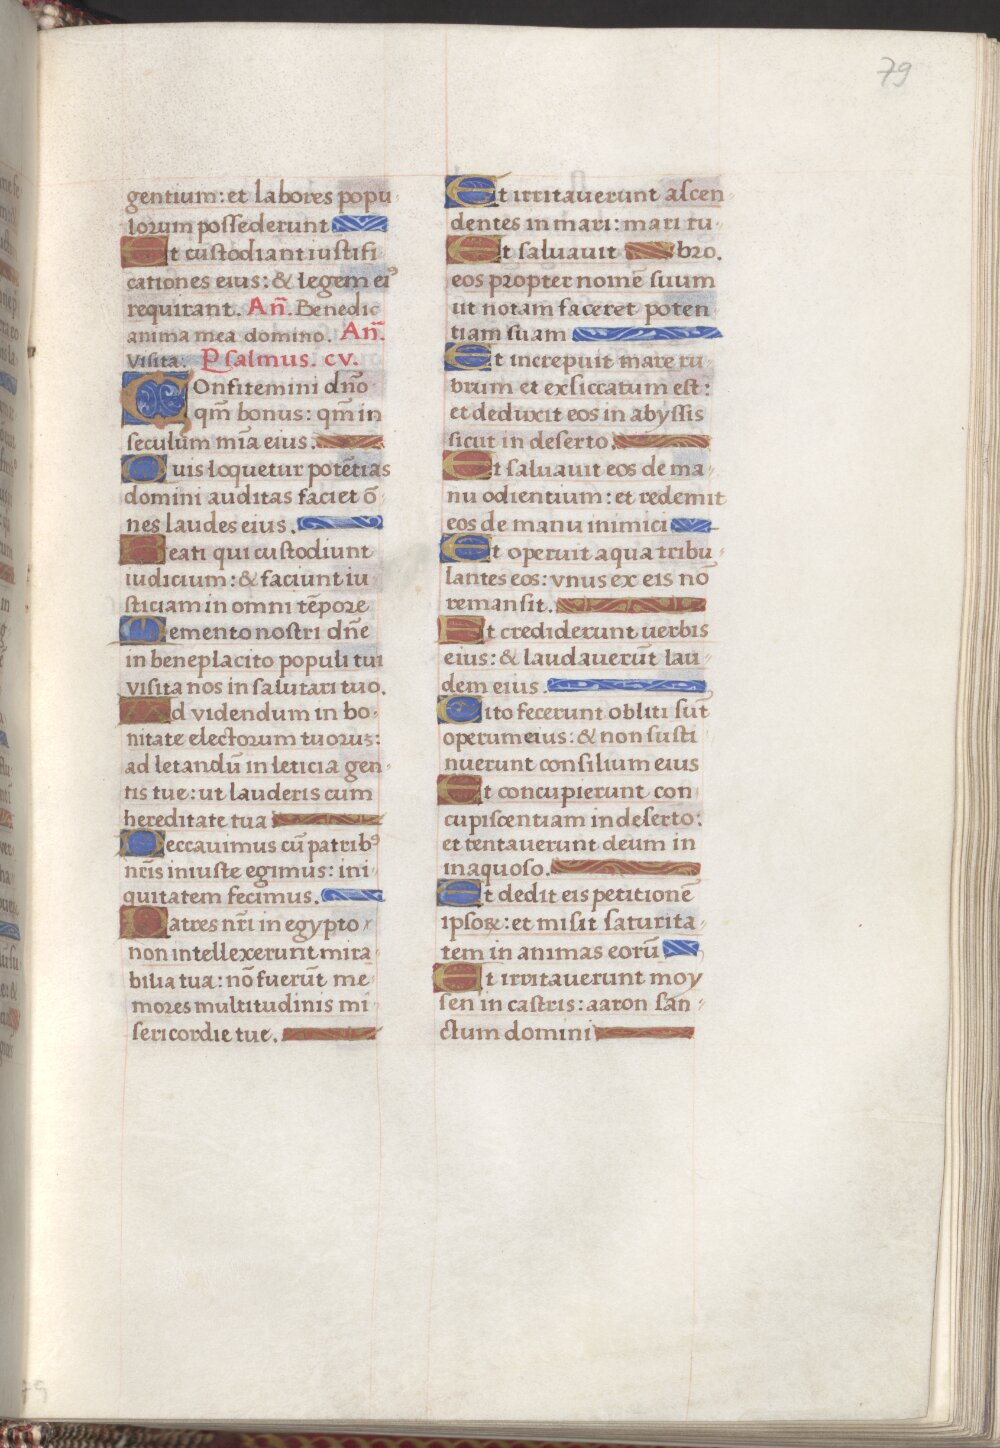 79
gentium: et labores popu
lorum possederunt
Et custodiant iustifi
cationes eius: & legem eiꝰ
requirant. An̄. Benedic
anima mea domino. An̄.
Visita. Psalmus. cv.
COnfitemini dn̄o
qm̄ bonus: qm̄ in
seculum mīa eius.
Quis loquetur potētias
domini auditas faciet ō
nes laudes eius.
Beati qui custodiunt
iudicium: & faciunt iu
sticiam in omni tēpore
Memento nostri dn̄e
in beneplacito populi tui
visita nos in salutari tuo.
Ad videndum in bo
nitate electorum tuorus:
ad letandū in leticia gen
tis tue: ut lauderis cum
hereditate tua
Peccavimus cū patribꝰ
nr̄is iniuste egimus: ini
quitatem fecimus.
Patres nr̄i in egypto
non intellexerunt mira
bilia tua: nō fuerūt me
mores multitudinis mi
sericordie tue.
Et irritaverunt ascen
dentes in mari: mari ru
Et salvavit bro.
eos propter nomē suum
ut notam faceret poten
tiam suam
Et increpuit mare ru
brum et exsiccatum est:
et deduxit eos in abyssis
sicut in deserto.
Et salvavit eos de ma
nu odientium: et redemit
eos de manu inimici
Et operuit aqua tribu
lantes eos: vnus ex eis nō
remansit.
Et crediderunt uerbis
eius: & laudaverūt lau
dem eius.
Cito fecerunt obliti sūt
operum eius: & non susti
nuerunt consilium eius
Et concupierunt con
cupiscentiam in deserto:
et tentaverunt deum in
inaquoso.
Et dedit eis petitionē
ipsoꝝ: et misit saturita
tem in animas eorū
Et irritaverunt moy
sen in castris: aaron san
ctum domini